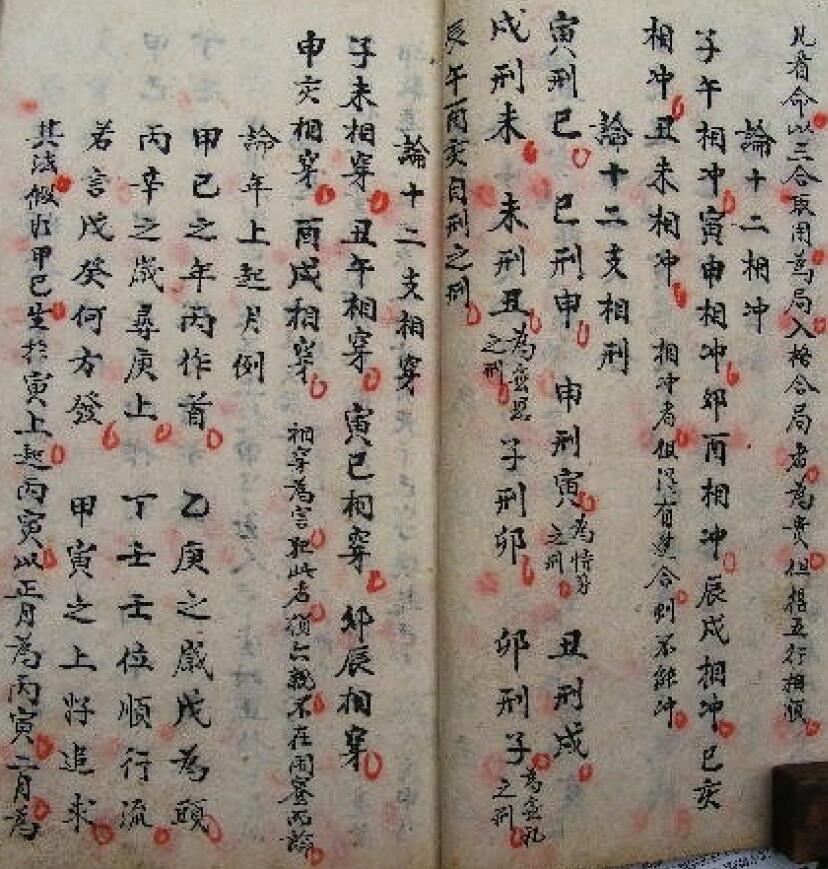 凡看命以三合取用為局入格合局者為貴但指五行相順
論十二相冲
子午相冲寅申相冲卯酉相冲辰戌相冲巳亥
相冲丑未相冲 相冲者但有合則不能冲
論十二支相刑
寅刑巳 巳刑申 申刑寅為恃势之刑 丑刑戌
戌刑未 未刑丑為無恩之刑 子刑卯 卯刑子為無礼之刑
辰午酉亥自刑之刑
論十二支相穿
子未相穿丑午相穿寅巳相穿卯辰相穿
申亥相穿酉戌相穿 相穿為害犯此者六親不在用蹇而論
論年上起月例
甲己之年丙作首 乙庚之歲戊為頭
丙辛之歲尋庚上 丁壬壬位順行流
若言戊癸何方發 甲寅之上好追求
其法假如甲己生於寅上起丙寅以正月為丙寅二月為